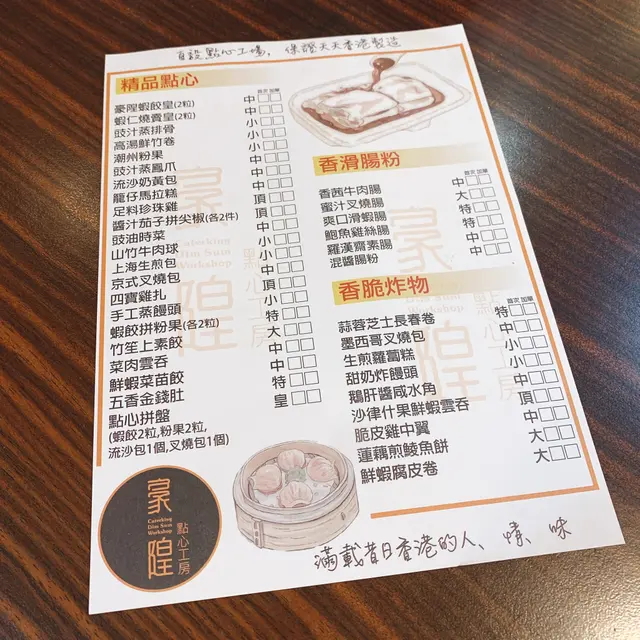 自設點心工場，保證天天香港製造
精品點心
首次 加單
豪隍蝦餃皇(2粒) 中
蝦仁燒賣皇(2粒) 中
豉汁蒸排骨 小
高湯鮮竹卷 小
潮州粉果 小
豉汁蒸鳳爪 中
流沙奶黃包 中
龍仔馬拉糕 中
足料珍珠雞 頂
醬汁茄子拼尖椒(各2件) 頂
豉油時菜 中
山竹牛肉球 小
上海生煎包 小
京式叉燒包 中
四寶雞扎 中
手工蒸饅頭 頂
蝦餃拼粉果(各2粒) 小
竹笙上素餃 特
菜肉雲吞 大
鮮蝦菜苗餃 中
五香金錢肚 中
點心拼盤 特
(蝦餃2粒,粉果2粒, 皇
流沙包1個,叉燒包1個)
香滑腸粉
首次 加單
香茜牛肉腸 中
蜜汁叉燒腸 大
爽口滑蝦腸 特
鮑魚雞絲腸 特
羅漢齋素腸 中
混醬腸粉 中
香脆炸物
首次 加單
蒜蓉芝士長春卷 特
墨西哥叉燒包 中
生煎蘿蔔糕 小
甜奶炸饅頭 中
鵝肝醬咸水角 小
沙律什果鮮蝦雲吞 中
脆皮雞中翼 頂
蓮藕煎鯪魚餅 中
鮮蝦腐皮卷 大
大
豪隍
Catering
Dim Sum
Workshop
點心工房
豪隍
點心工房
滿載昔日香港的人、情、味